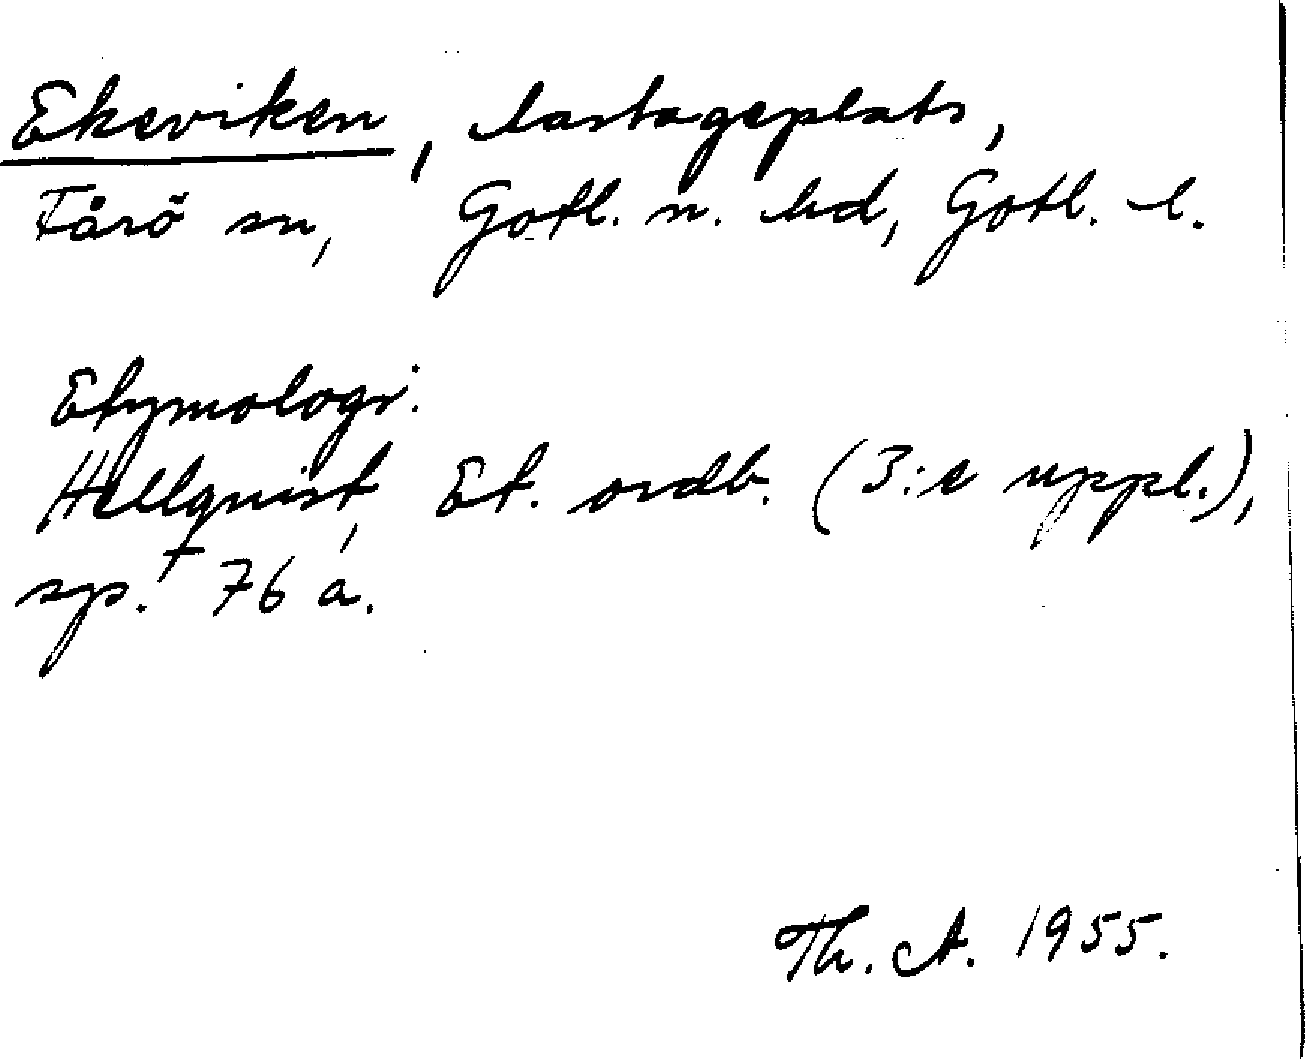 Ekeviken, lastageplats,
Fårö sn, Gotl. n. hd, Gotl. l.
Etymologi:
Hellquist, Et. ordb. (3:e uppl.),
sp. 76 a.
Th. A. 1955.